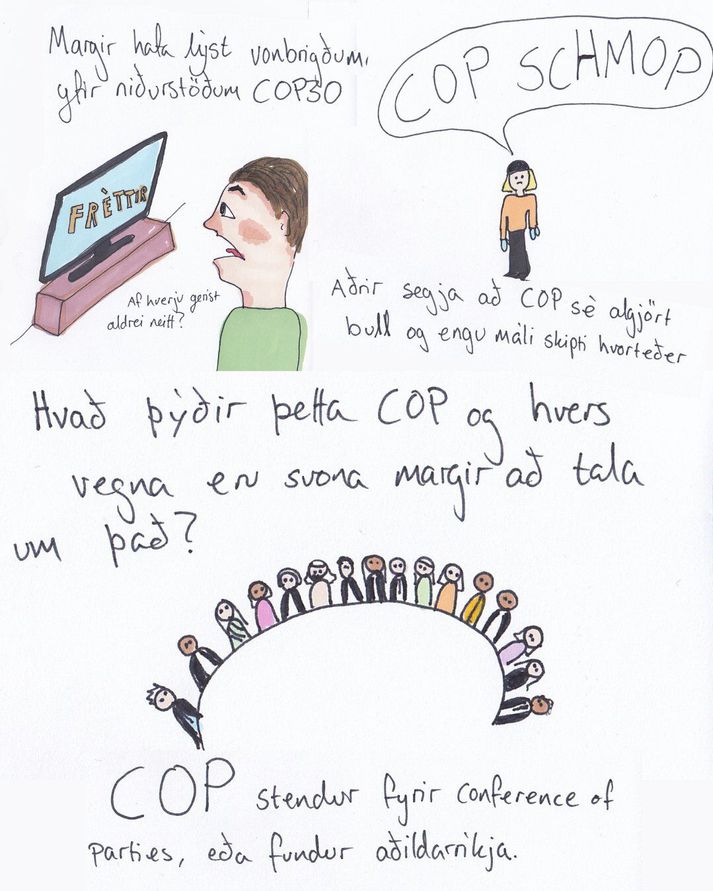 Margir hafa lýst vonbrigðum
yfir niðurstöðum COP30
FRÈTTIR
Af hverju gerist
aldrei neitt?
COP SCHMOP
Aðrir segja að COP sè algjört
bull og engu máli skipti hvorteðer
Hvað þýðir þetta COP og hvers
vegna eru svona margir að tala
um það?
COP stendur fyrir conference of
parties, eða fundur aðildarríkja.